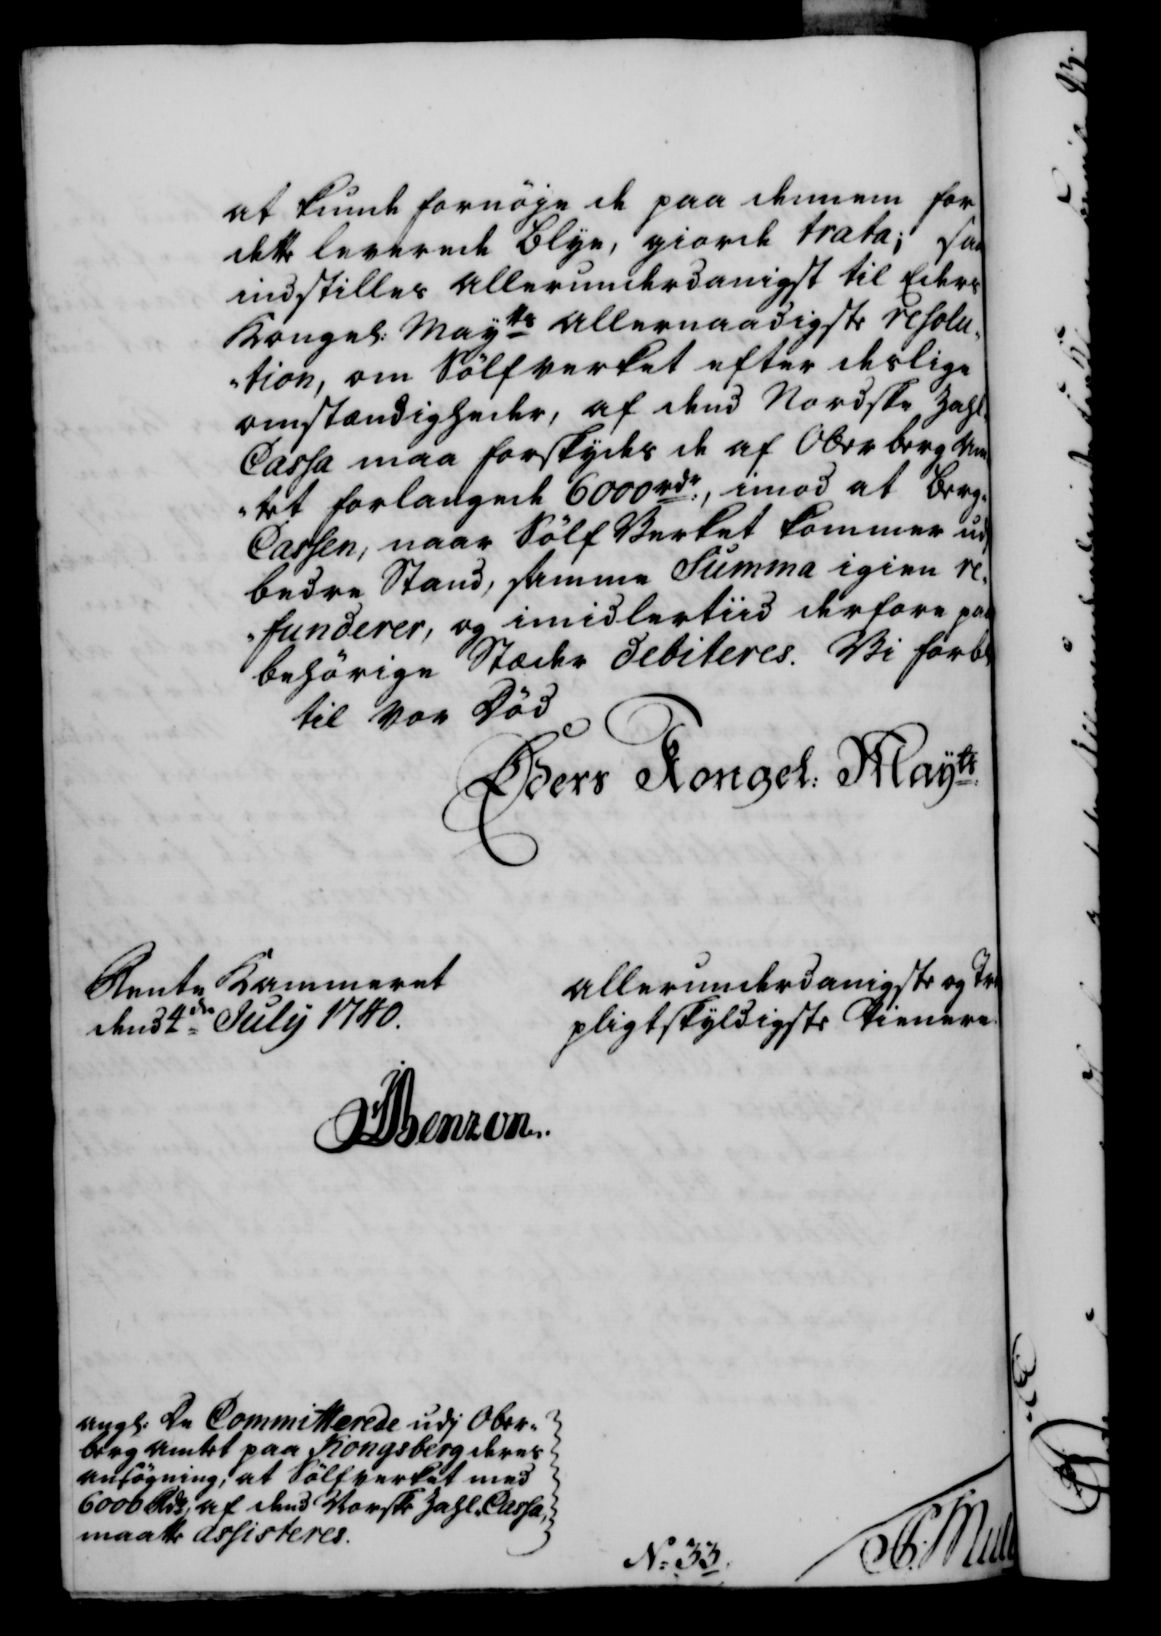 at kunde fornöje de paa dennem for
dette leverede Blye, giorde trata; saa
indstilles allerunderdanigst til Eders
Kongel: Mayts allernaadigste resolu-
-tion, om Sölfverket efter deslige
omstændigheder, af dend Nordske Zahl-
Cassa maa forskydes de af Oberberg Am
-tet forlangede 6000 rdr:, imod at Berg-
Cassen, naar Sölf Verket kommer udj
bedre Stand, samme Summa igien re-
-funderer, og imidlertiid derfore paa
behörige Stæder debiteres. Vi forbl
til vor Död
Eders Kongel: Mayts.
Rente Kammeret
dend 4de July 1740.
allerunderdanigste og Tro
pligtskyldigste tienere.
Benzon.
angl: De Committerede udj Ober-
berg Amtet paa Kongsberg deres
ansögning, at Sölfverket med
6000 Rdr, af dend Norske Zahl-Cassa,
maatte assisteres.
No: 33.